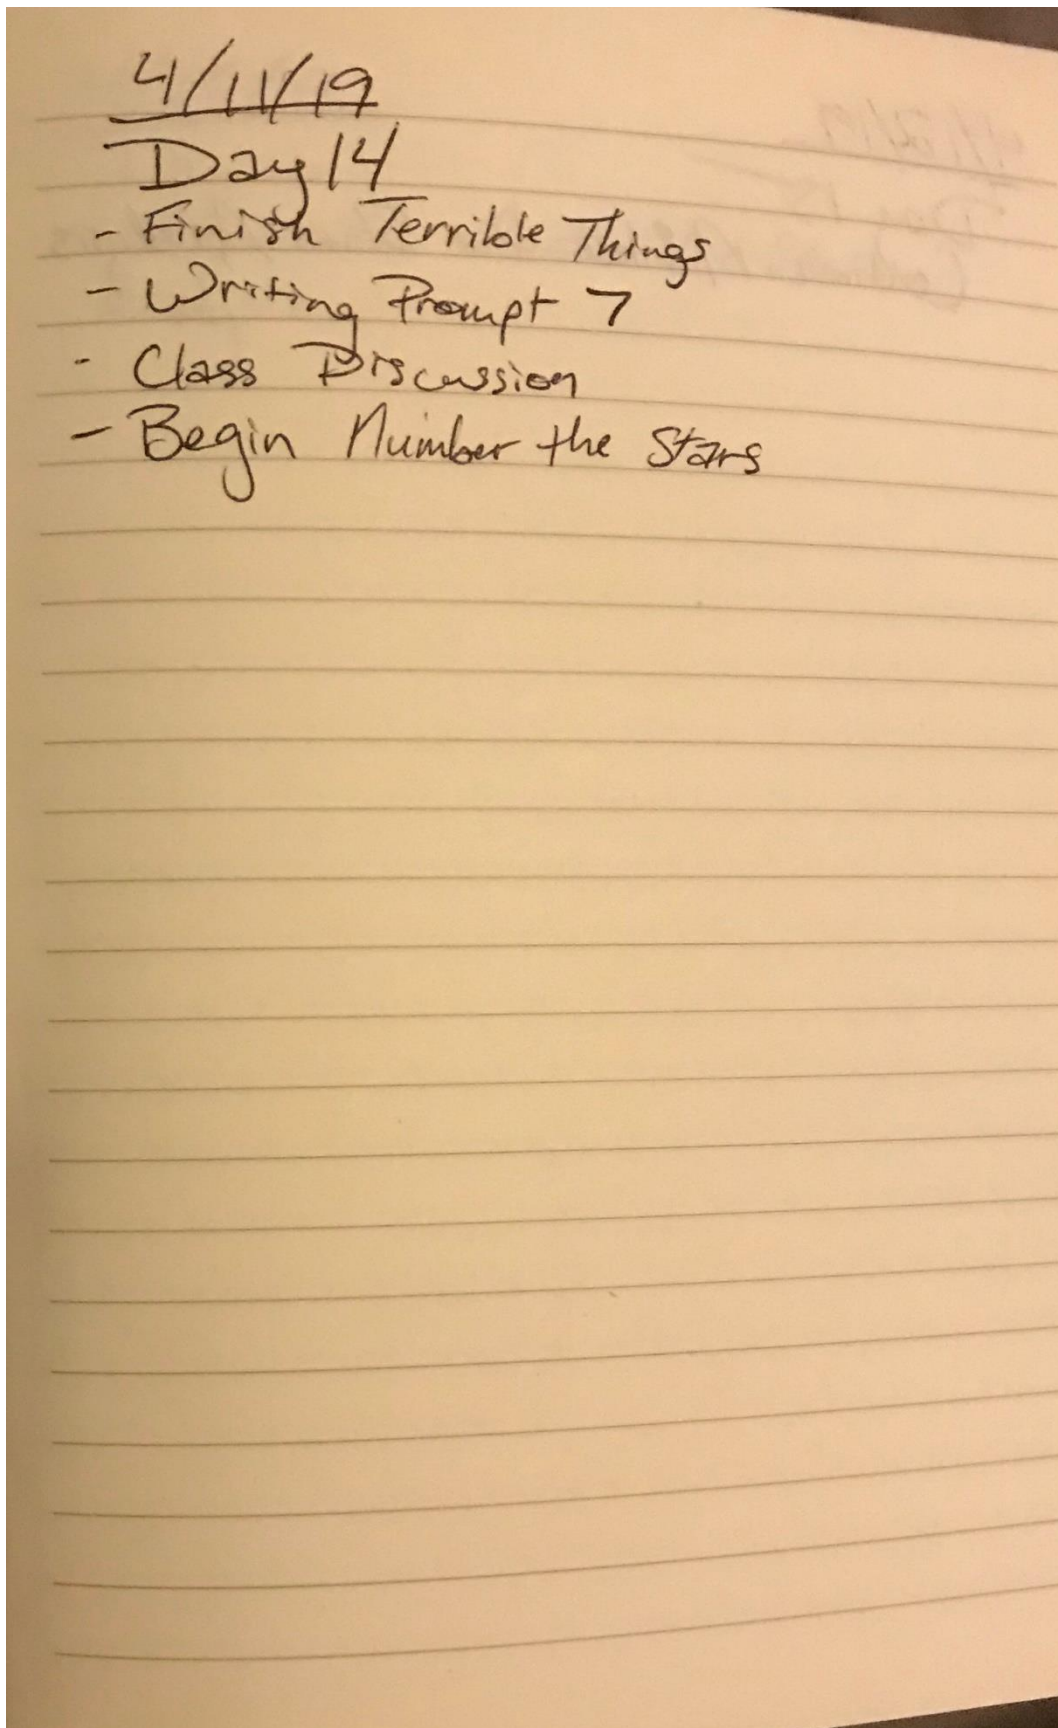 4/11/19
Day 14
- Finish Terrible Things
- Writing Prompt 7
- Class Discussion
- Begin Number the Stars